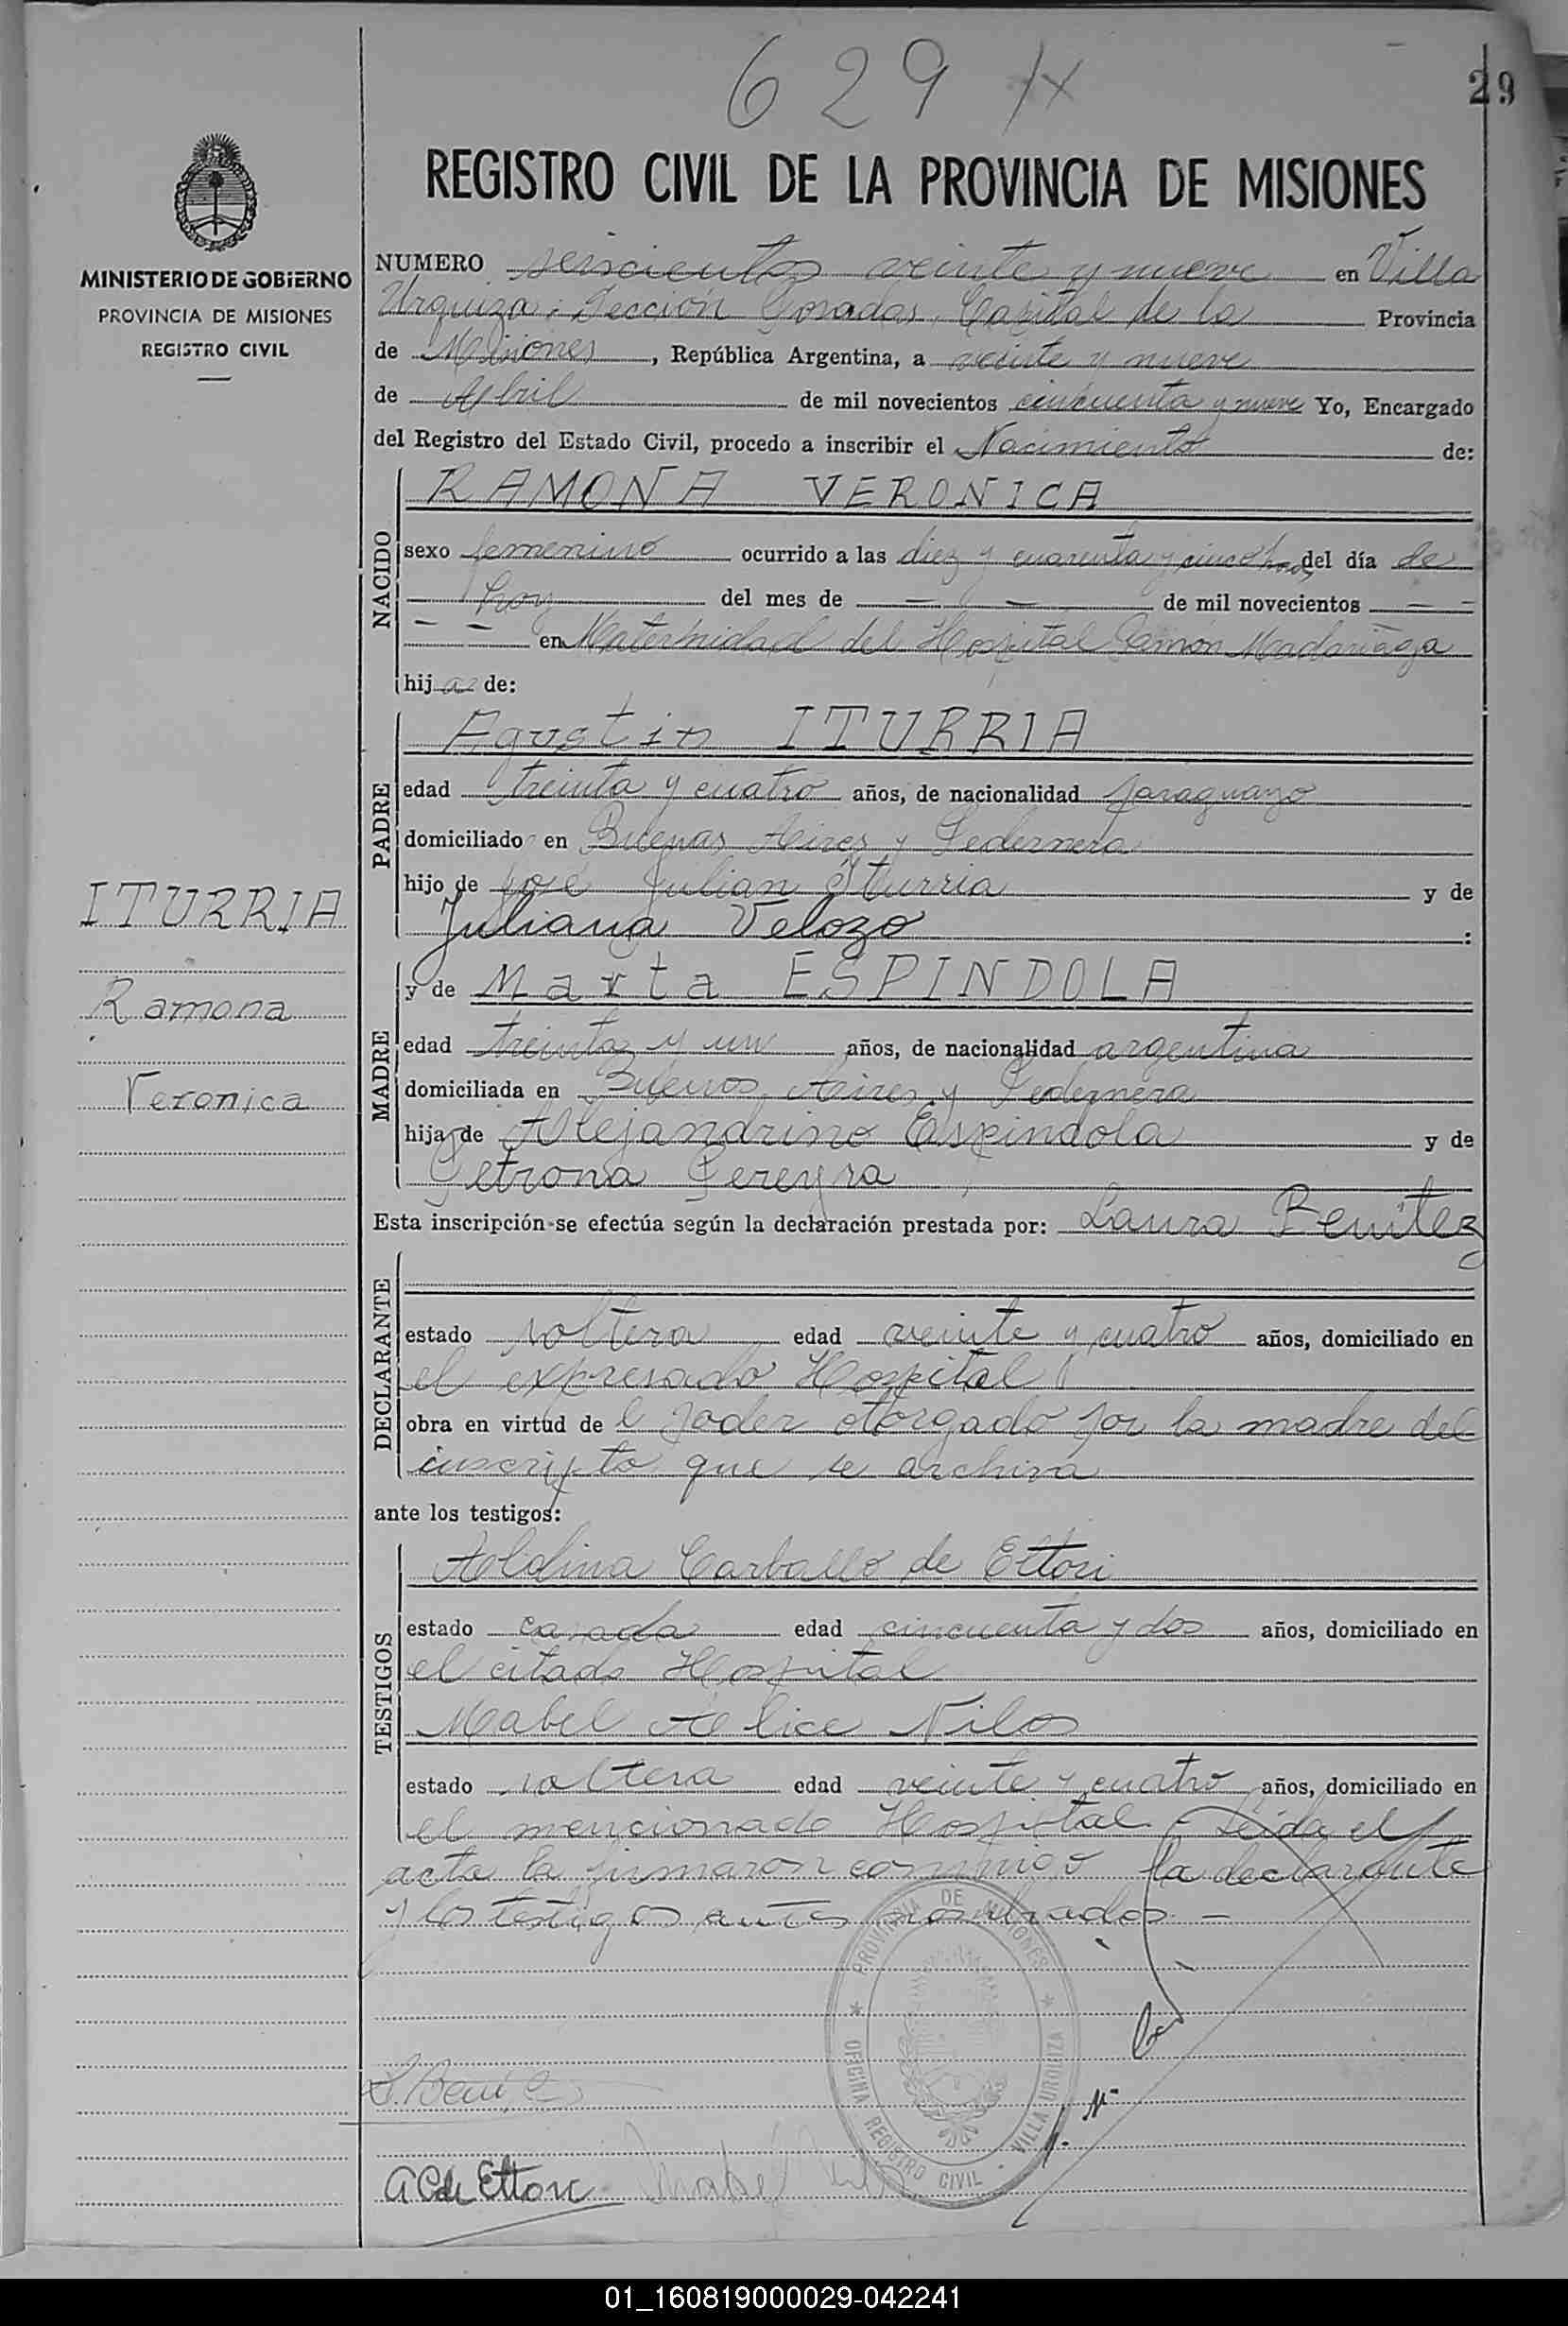 629
29
REGISTRO CIVIL DE LA PROVINCIA DE MISIONES
MINISTERIO DE GOBIERNO
PROVINCIA DE MISIONES
REGISTRO CIVIL
NUMERO seiscientos veinte y nueve en Villa
Urquiza, Sección Posadas, Capital de la Provincia
de Misiones, República Argentina, a veinte y nueve
de Abril de mil novecientos cincuenta y nueve Yo, Encargado
del Registro del Estado Civil, procedo a inscribir el Nacimiento de:
NACIDO
RAMONA VERONICA
sexo femenino ocurrido a las diez y cuarenta y cinco horas del día de
hoy del mes de — — de mil novecientos — —
— — en Maternidad del Hospital Ramón Madariaga
hija de:
PADRE
Agustin ITURRIA
edad treinta y cuatro años, de nacionalidad paraguayo
domiciliado en Buenas Aires y Pedernera
hijo de José Julian Iturria y de
Juliana Velozo :
ITURRIA
Ramona
Veronica
MADRE
y de Marta ESPINDOLA
edad treinta y un años, de nacionalidad argentina
domiciliada en Buenos Aires y Pedernera
hija de Alejandrino Espindola y de
Petrona Pereyra
Esta inscripción se efectúa según la declaración prestada por: Laura Benitez
DECLARANTE
estado soltera edad veinte y cuatro años, domiciliado en
el expresado Hospital
obra en virtud de l poder otorgado por la madre del
inscripto que se archiva
ante los testigos:
TESTIGOS
Aldina Carballo de Ettori
estado casada edad cincuenta y dos años, domiciliado en
el citado Hospital
Mabel Alice Nilos
estado soltera edad veinte y cuatro años, domiciliado en
el mencionado Hospital - Leida el
acta la firmaron conmigo la declarante
y los testigos antes nombrados -
PROVINCIA DE MISIONES
OFICINA REGISTRO CIVIL - VILLA URQUIZA
L. Benitez
A C de Ettori
Mabel
01_160819000029-042241